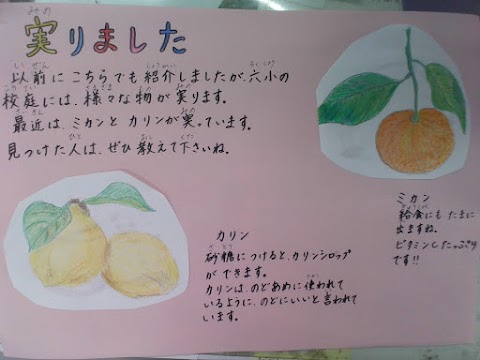 実りました
以前にこちらでも紹介しましたが、六小の
校庭には、様々な物が実ります。
最近は、ミカンとカリンが実っています。
見つけた人は、ぜひ教えて下さいね。
ミカン
給食にもたまに
出ますね。
ビタミンCたっぷり
です!!
カリン
砂糖につけると、カリンシロップ
ができます。
カリンは、のどあめに使われて
いるように、のどにいいと言われて
います。